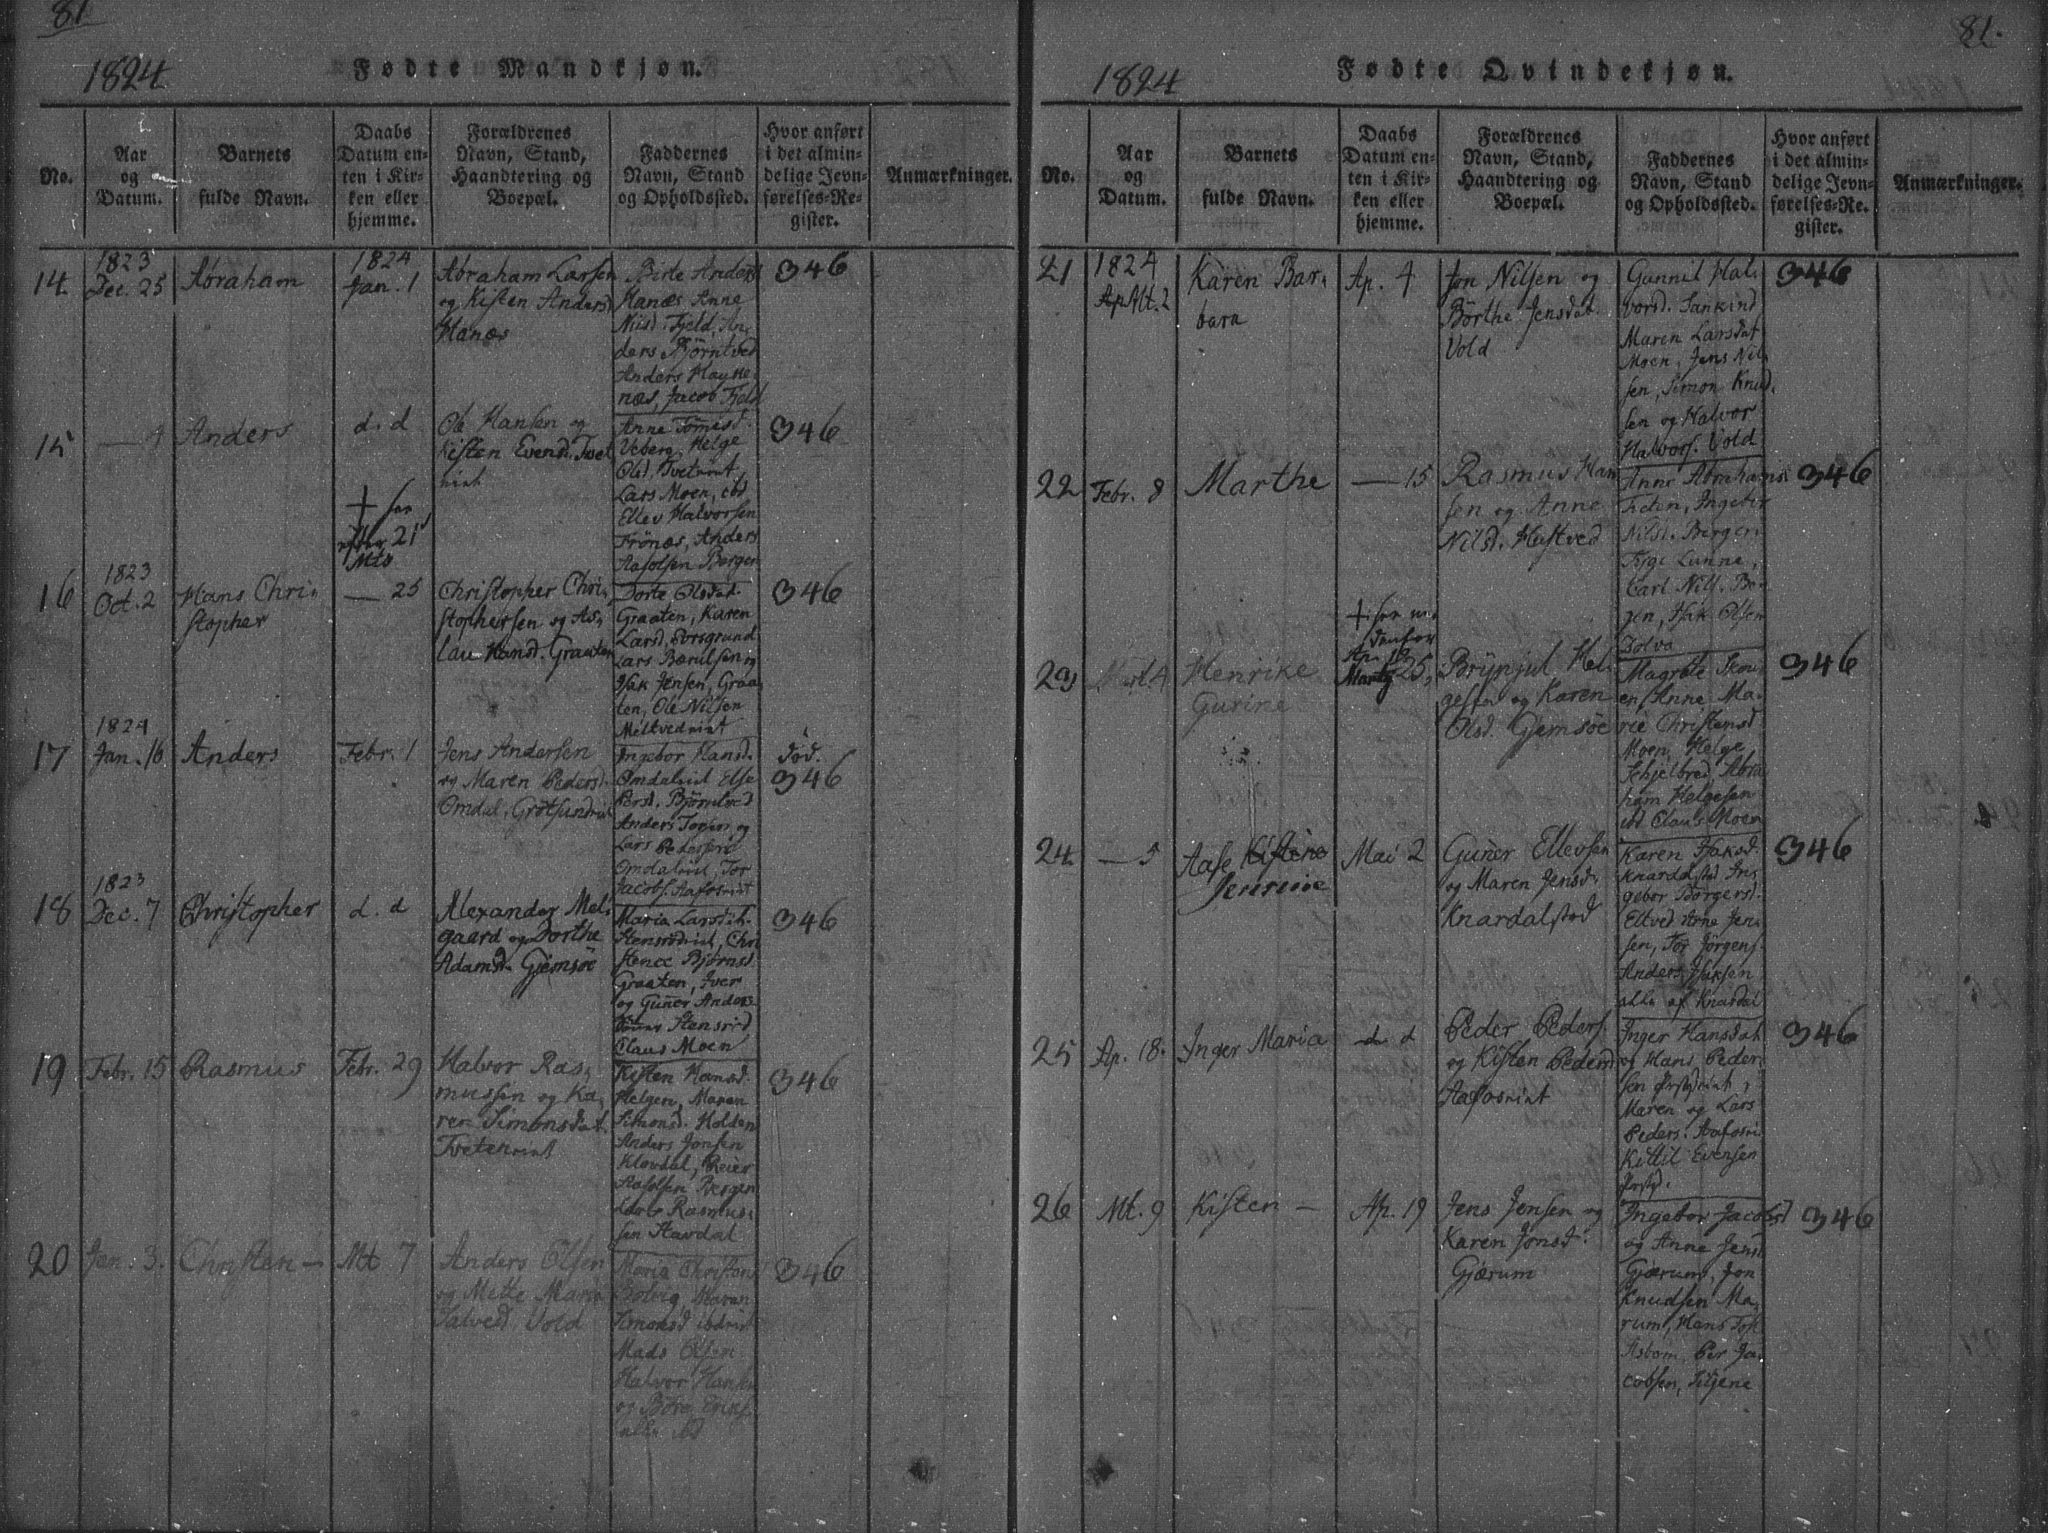 81
1824
Fødte Mandkjøn.
No.
Aar
og
Datum.
Barnets
fulde Navn.
Daabs
Datum en-
ten i Kir-
ken eller
hjemme.
Forældrenes
Navn, Stand,
Haandtering og
Boepæl.
Faddernes
Navn, Stand
og Opholdssted.
Hvor anført
i det almin-
delige Jevn-
førelses-Re-
gister.
Anmærkninger.
14.
1823
Dec. 25
Abraham
1824
Jan. 1
Abraham Larsen
og Kisten Andersd
Hanæs
Birte Andersd
Hanæs Anne
Nilsd. Fjeld, An-
ders Björntved
Anders
næs, Jacob Fjeld
346
15
— 4
Anders
d. d
Ole Hansen og
Kisten Evensd. Tvet
Anne
Helge
Olsd.
Lars Moen,
Ellev Halvorsen
Frönæs, Anders
Aasolsen Berger
346
16
1823
Oct. 2
Hans Chri-
stopher
— 25
Christopher Chri-
stophersen og As-
lau Hansd. Graaten
Dorte Olsdat.
Graaten, Karen
Larsd. Porsgrund
Lars
Isak Jensen, Graa-
ten, Ole Nilsen
346
17
1824
Jan. 16
Anders
Febr. 1
Jens Andersen
og Maren Pedersd.
Omdal,
Ingebor Hansd.
Else
Persd. Björntved
Anders
Lars Pedersen
Tor
Jacobs.
död.
346
18
1823
Dec. 7
Christopher
d. d
Alexander Mel-
gaard og Dorthe
Adamsd. Gjemsöe
Maria Larsdat.
Chri-
stence Björnsd
Graaten, Iver
og Guner Anders
Claus Moen
346
19
Febr. 15
Rasmus
Febr. 29
Halvor Ras-
mussen og Ka-
ren Simonsdat.
Kisten Hansd.
Helgen, Maren
Simonsd. Holden
Anders Jonsen
Klovdal, Reier
Aasolsen Bergen
Rasmus-
sen Stavdal
346
20
Jan. 3.
Christen —
Mt 7
Anders Olsen
og Mette Marie
Vold
Maria Christens
Bolvig, Maren
Simonsd
Mads Olsen
Halvor Hansen
alle ibd
346
81.
1824
Fødte Qvindekjøn.
No.
Aar
og
Datum.
Barnets
fulde Navn.
Daabs
Datum en-
ten i Kir-
ken eller
hjemme.
Forældrenes
Navn, Stand,
Haandtering og
Boepæl.
Faddernes
Navn, Stand
og Opholdssted.
Hvor anført
i det almin-
delige Jevn-
førelses-Re-
gister.
Anmærkninger.
21
1824
Mt. 2
Karen Bar-
bara
Ap. 4
Jon Nilsen og
Börthe Jensdat.
Vold
Gunnil Hal-
vorsd.
Maren Larsdat
Moen, Jens Nil-
sen, Simon Knud-
sen og Halvor
Halvors. Vold
346
22
Febr. 8
Marthe
— 15
Rasmus Han
sen og Anne
Nilsd. Hustved
Anne Abrahamsd
Feten, Ingebor
Nilsd. Bergen
Lunne,
Carl Nills. Bö-
gen, Isak Olsen
346
23
Mart. 4
Henrike
Gurine
25
Brynjul Hel-
gesen og Karen
Olsd. Gjemsöe
Magrete
Anne Ma-
rie Christensd
Moen, Helge
Abra-
ham Helgesen
Claus Moen
346
24
— 5
Aase Kistene
Jensine
Mai 2
Guner Ellevsen
og Maren Jensd.
Knardalstad
Karen Isaksd.
Knardalstad In-
gebor Borgersd.
Eltved Arne Jen-
sen, Tor Jörgens.
Anders Isaksen
alle af Knardal
346
25
Ap. 18.
Inger Maria
d. d
Peder Peders.
og Kisten Pedersd
Inger Hansdat
og Hans Peder-
sen
Maren og Lars
Peders.
Kittil Evensen
346
26
Mt. 9
Kisten —
Ap. 19
Jens Jensen og
Karen Jonsd.
Gjærum
Ingebor Jacobsd
og Anne Jensd
Gjærum, Jon
Knudsen Ma-
rum, Hans
Per Ja-
cobsen,
346